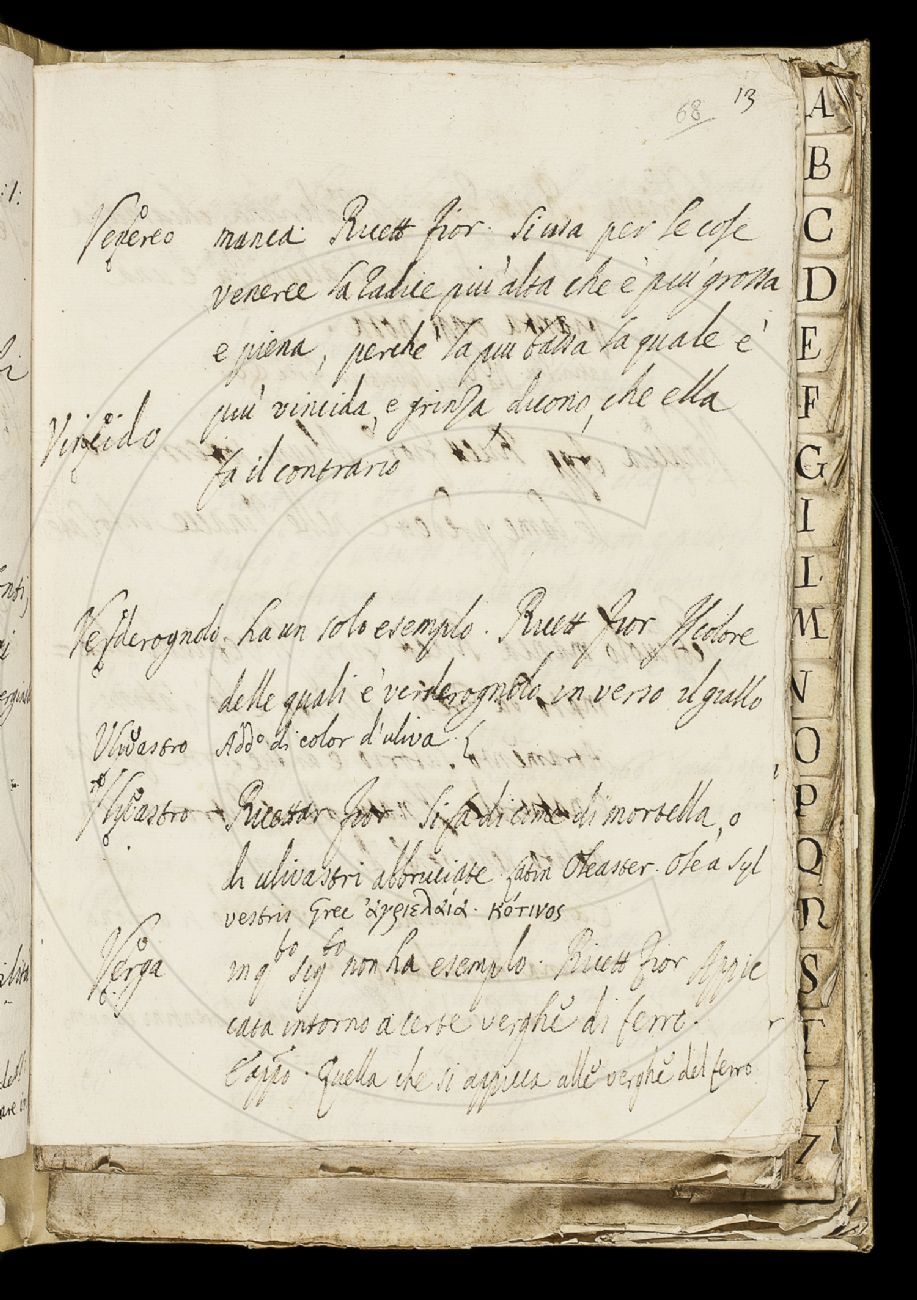 68 13
Venereo manca. Ricett Fior. Si usa per le cose
veneree la radice più alta che è più grossa
e piena, perche la più bassa la quale è
Vincido
più vincida, e grinza dicono, che ella
fa il contrario
Verderognolo ha un solo esempio. Ricett Fior Il colore
delle quali è verderognolo in verso il giallo
Ulivastro Add.º di color d'uliva.
Ulivastro Ricettar Fior Si fa di cime di mortella, o
di ulivastri abbruciate. Latin Oleaster. Olea Syl
vestris Grec ἀγριελαία. κότινος
Verga in qto sigto non ha esempio. Ricett Fior Appic
cata intorno a certe verghe di ferro.
E appo. Quella che si appicca alle verghe del ferro
A
B
C
D
E
F
G
I
L
M
N
O
P
Q
R
S
T
V
Z